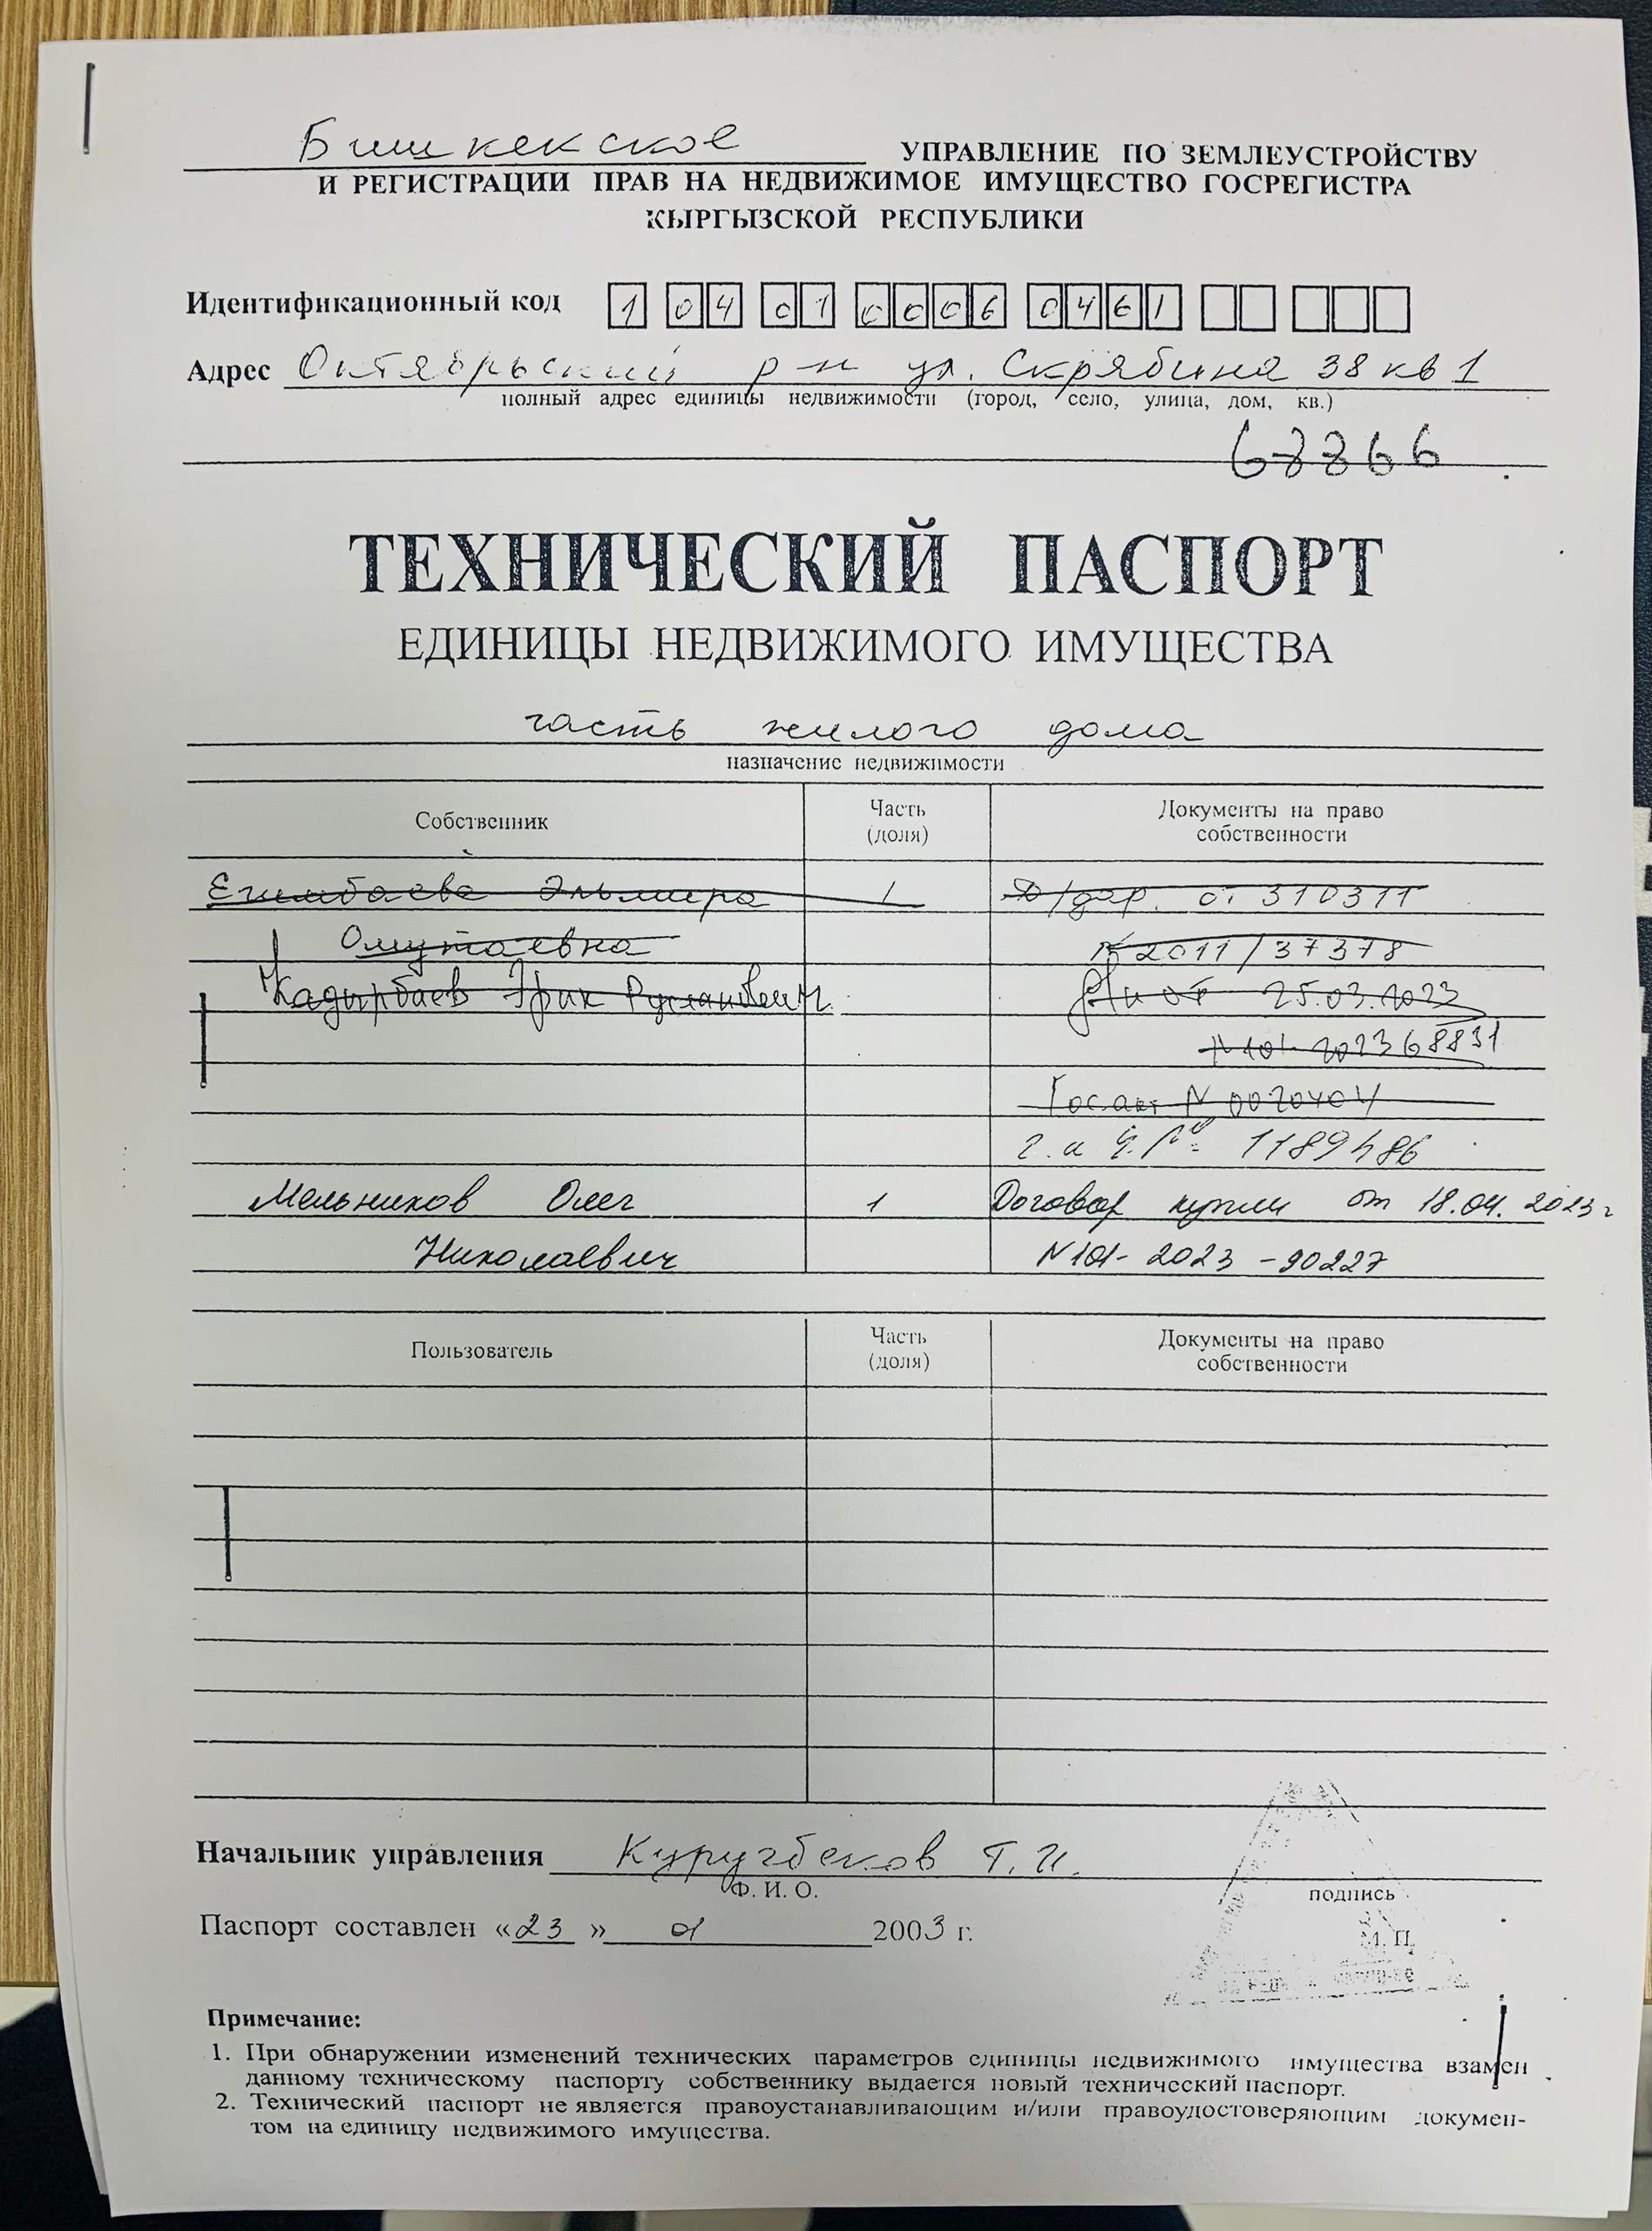 Бишкекское УПРАВЛЕНИЕ ПО ЗЕМЛЕУСТРОЙСТВУ
И РЕГИСТРАЦИИ ПРАВ НА НЕДВИЖИМОЕ ИМУЩЕСТВО ГОСРЕГИСТРА
КЫРГЫЗСКОЙ РЕСПУБЛИКИ
Идентификационный код 1 04 01 0006 0461
Адрес Октябрьский р-н ул. Скрябина 38 кв 1
полный адрес единицы недвижимости (город, село, улица, дом, кв.)
ТЕХНИЧЕСКИЙ ПАСПОРТ
ЕДИНИЦЫ НЕДВИЖИМОГО ИМУЩЕСТВА
часть жилого дома
назначение недвижимости
Собственник Часть (доля) Документы на право собственности
Эльмира 1 Д/дар. от 310311
№ 2011/37378
Кадырбаев Эрик Русланович от 25.03.2023
N 101-2023 68831
Гос.акт N 0020404
1189486
Мельников Олег 1 Договор купли от 18.04.2023г
Николаевич N101-2023-90227
Пользователь Часть (доля) Документы на право собственности
Начальник управления Т.И.
Ф. И. О.
подпись
Паспорт составлен «23» 01 2003 г.
М. П.
Примечание:
1. При обнаружении изменений технических параметров единицы недвижимого имущества взамен
данному техническому паспорту собственнику выдается новый технический паспорт.
2. Технический паспорт не является правоустанавливающим и/или правоудостоверяющим докумен-
том на единицу недвижимого имущества.